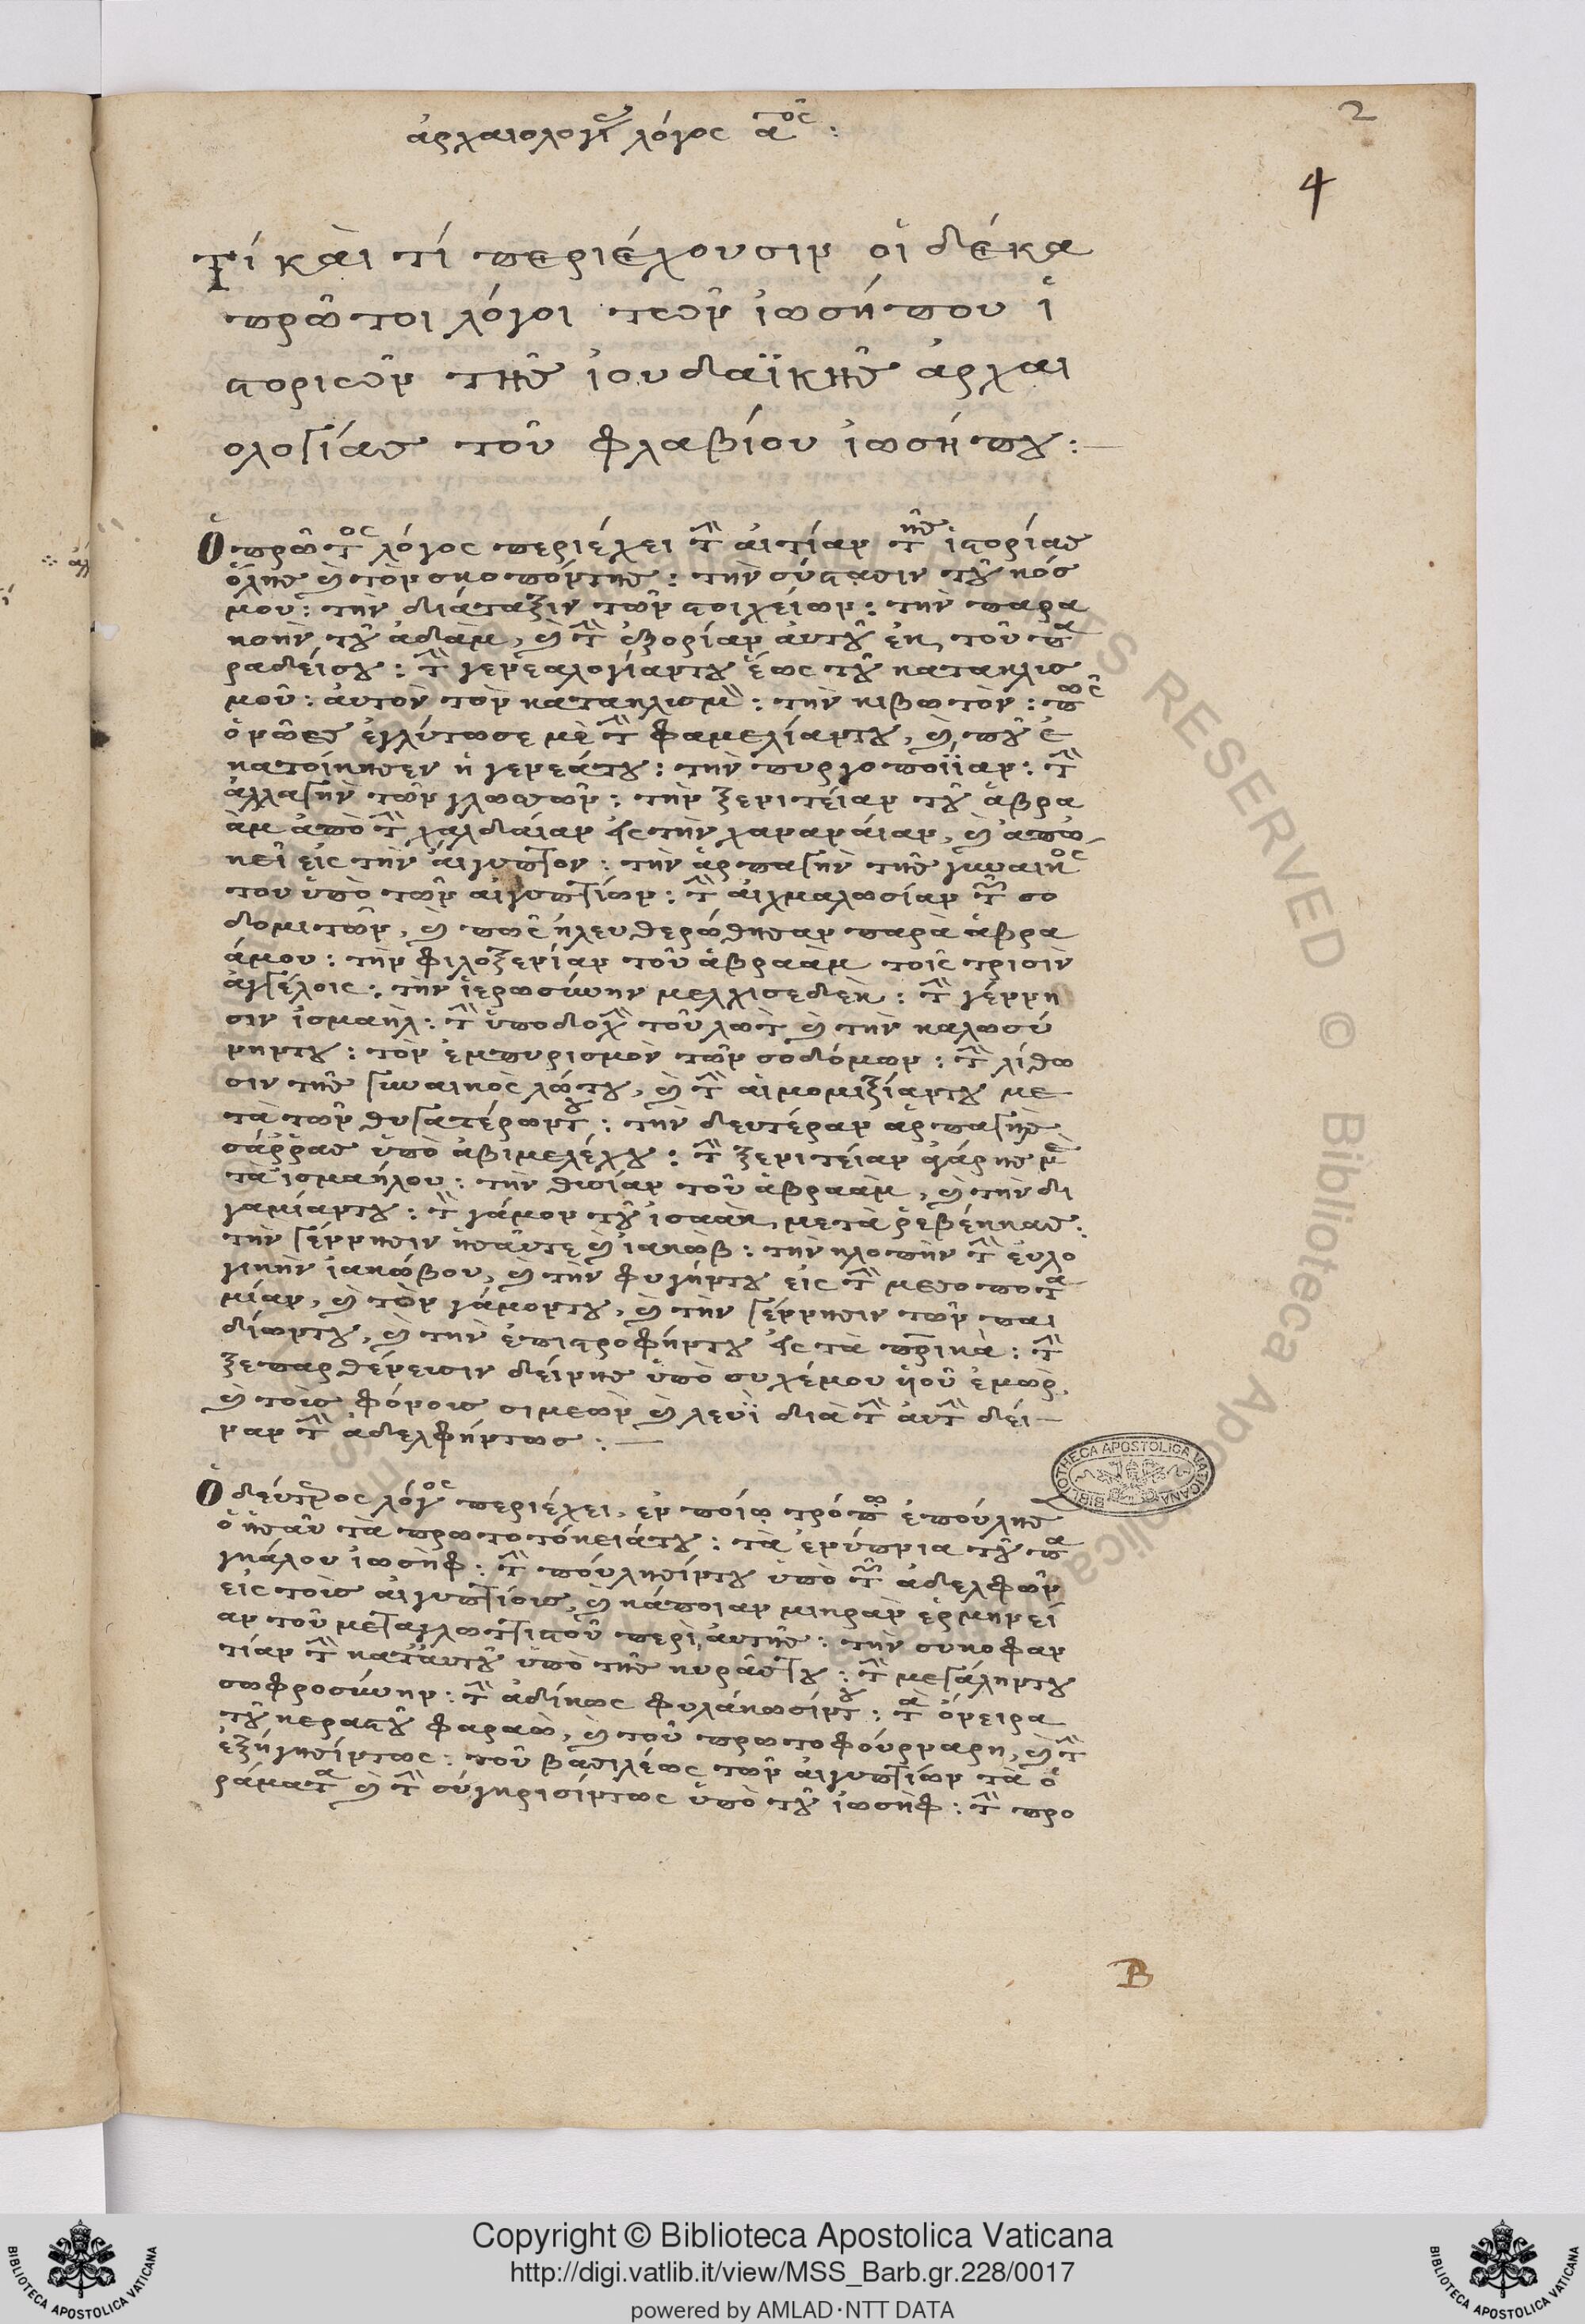 2
ἀρχαιολογίας λόγος αος :
4
Τί καὶ τί περιέχουσιν οἱ δέκα
πρῶτοι λόγοι τῶν ἰωσήπου ἱ
στοριῶν τῆς ἰουδαϊκῆς ἀρχαι
ολογίας τοῦ φλαβίου ἰωσήπου :—
Ὁ πρῶτος λόγος περιέχει τὴν αἰτίαν τῆς ἱστορίας
ὅλης καὶ τὸν σκοπόν της : τὴν σύστασιν τοῦ κόσ
μου : τὴν διάταξιν τῶν στοιχείων : τὴν παρα
κοὴν τοῦ ἀδὰμ, καὶ τὴν ἐξορίαν αὐτοῦ ἐκ τοῦ πα
ραδείσου : τὴν γενεαλογίαν του ἕως τοῦ κατακλισ
μοῦ : αὐτὸν τὸν κατακλισμὸν : τὴν κιβωτὸν : πῶς
ὁ νῶες ἐγλύτωσε μὲ τὴν φαμελίαν του, καὶ ποῦ ἐ
κατοίκησεν ἡ γενεά του : τὴν πυργοποιΐαν : τὴν
ἀλλαγὴν τῶν γλωσσῶν : τὴν ξενιτείαν τοῦ ἀβρα
ὰμ ἀπὸ τὴν χαλδαίαν εἰς τὴν χαναναίαν, καὶ ἀπὸ
κεῖ εἰς τὴν αἴγυπτον : τὴν ἁρπαγὴν τῆς γυναικός
του ὑπὸ τῶν αἰγυπτίων : τὴν αἰχμαλωσίαν τῶν σο
δομιτῶν, καὶ πῶς ἠλευθερώθησαν παρὰ ἀβρα
άμου : τὴν φιλοξενίαν τοῦ ἀβραὰμ τοῖς τρισὶν
ἀγγέλοις : τὴν ἱερωσύνην μελχισεδὲκ : τὴν γέννη
σιν ἰσμαὴλ : τὴν ὑποδοχὴν τοῦ λὼτ καὶ τὴν καλωσύ
νην του : τὸν ἐμπυρισμὸν τῶν σοδόμων : τὴν λίθω
σιν τῆς γυναικὸς λώτου, καὶ τὴν αἱμομιξίαν του με
τὰ τῶν θυγατέρων του : τὴν δευτέραν ἁρπαγὴν
σάρρας ὑπὸ ἀβιμελέχου : τὴν ξενιτείαν ἀγάρης με
τὰ ἰσμαήλου : τὴν θυσίαν τοῦ ἀβραὰμ, καὶ τὴν δι
γαμίαν του : τὸν γάμον τοῦ ἰσαὰκ μετὰ ῥεβέκκας :
τὴν γέννησιν ἠσαῦ τε καὶ ἰακώβ : τὴν κλοπὴν τὴν εὐλο
γικὴν ἰακώβου, καὶ τὴν φυγήν του εἰς τὴν μεσοποτα
μίαν, καὶ τὸν γάμον του, καὶ τὴν γέννησιν τῶν παι
δίων του, καὶ τὴν ἐπιστροφήν του εἰς τὰ πατρικὰ : τὴν
ξεπαρθένεισιν δείνης ὑπὸ συχέμου ὑιοῦ ἐμὼρ,
καὶ τοὺς φόνους σιμεὼν καὶ λευῒ διὰ τὴν αὐτὴν δεί—
ναν τὴν ἀδελφήν τως :—
Ὁ δεύτερος λόγος περιέχει, ἐν ποίῳ τρόπῳ ἐπούλησε
ὁ ἠσαῦ τὰ πρωτοτόκειά του : τὰ ἐνύπνια τοῦ πα
γκάλου ἰωσὴφ : τὴν πούλησίν του ὑπὸ τῶν ἀδελφῶν
εἰς τοὺς αἰγυπτίους, καὶ κάποιαν μικρὰν ἑρμηνεί
αν τοῦ μεταγλωττιστοῦ περὶ αὐτῆς : τὴν συκοφαν
τίαν τὴν κατ' αὐτοῦ ὑπὸ τῆς κυρᾶς του : τὴν μεγάλην του
σωφροσύνην : τὴν ἀδίκως φυλάκωσίν του : τὰ ὄνειρα
τοῦ κεραστοῦ φαραὼ, καὶ τοῦ πρωτοφούρναρη, καὶ τὴν
ἐξήγησίν τως : τοῦ βασιλέως τῶν αἰγυπτίων τὰ ὁ
ράματα καὶ τὴν σύγκρισίν τως ὑπὸ τοῦ ἰωσὴφ : τὴν προ
B
BIBLIOTHECA APOSTOLICA VATICANA
Copyright © Biblioteca Apostolica Vaticana
http://digi.vatlib.it/view/MSS_Barb.gr.228/0017
powered by AMLAD·NTT DATA